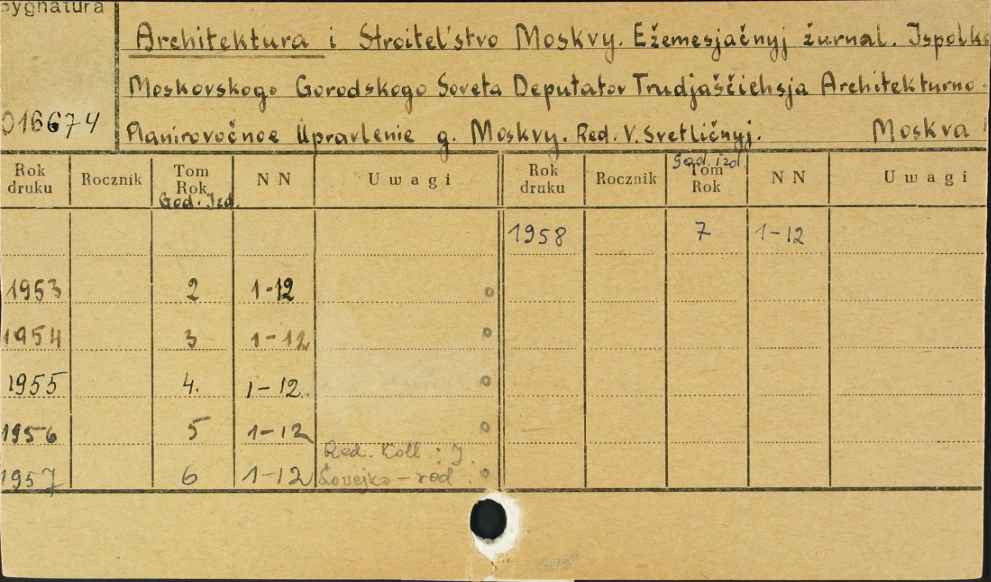 Sygnatura
016674
Architektura i Stroitel'stvo Moskvy. Ežemesjačnyj žurnal. Ispolko
Moskovskogo Gorodskogo Soveta Deputatov Trudjaščichsja Architekturno-
Planirovočnoe Upravlenie g. Moskvy. Red. V. Svetličnyj. Moskva
Rok druku Rocznik Tom Rok God. Izd. N N Uwagi Rok druku Rocznik God. izd. Tom Rok N N Uwagi
1958 7 1-12
1953 2 1-12
1954 3 1-12
1955 4. 1-12.
1956 5 1-12
1957 6 1-12 Red. Koll.: J.
Lovejko - red.